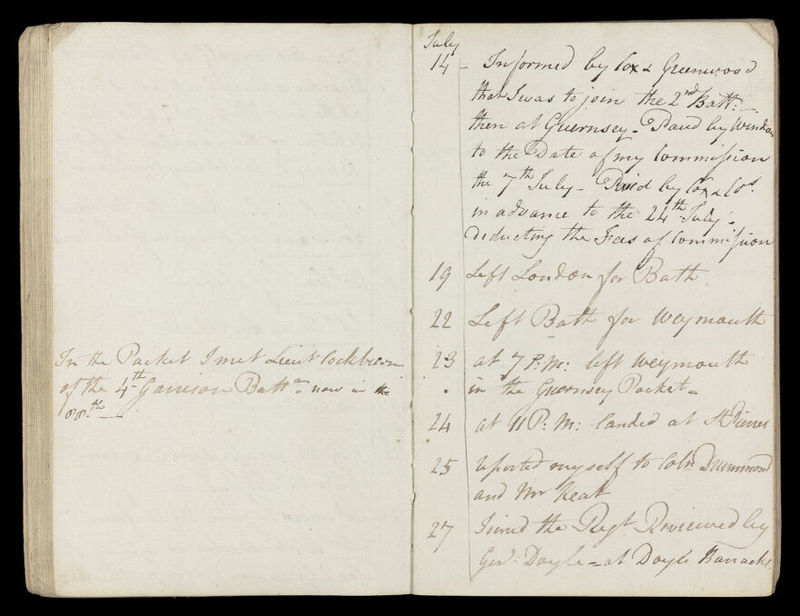 In the Packet I met Lieut Cockburn
of the 4th Garrison Battn now in the
88th
July
14 - Informed by Cox & Greenwood
that I was to join the 2nd Batt:
then at Guernsey - Paid by
to the Date of my Commission
the 7th July - Paid by Cox & Cos.
in advance to the 24th July -
deducting the Fees of Commission
19 Left London for Bath
22 Left Bath for Weymouth
23 at 7 P: M: left Weymouth
in the Guernsey Packet -
24 at 11 P: M: landed at St Pierres
25 reported myself to Coln Drummond
and Mr Keat
27 Joined the Regt Reviewed by
Genl Doyle - at Doyle Barracks